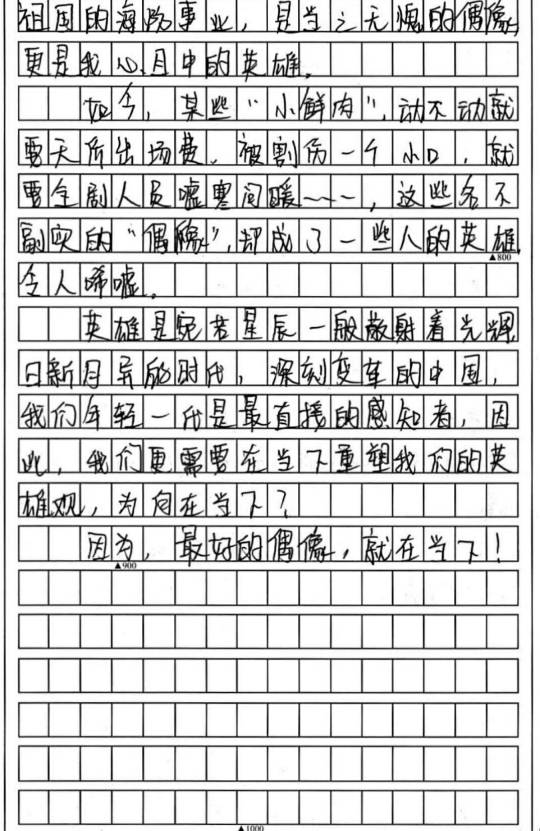 祖国的海防事业，是当之无愧的偶像，
更是我心目中的英雄。
如今，某些“小鲜肉”，动不动就
要天价出场费。被割伤一个小口，就
要全剧人员嘘寒问暖……，这些名不
副实的“偶像”，却成了一些人的英雄，
▲800
令人唏嘘。
英雄是宛若星辰一般散射着光辉
日新月异的时代，深刻变革的中国，
我们年轻一代是最直接的感知者，因
此，我们更需要在当下重塑我们的英
雄观，为何在当下？
因为，最好的偶像，就在当下！
▲900
▲1000